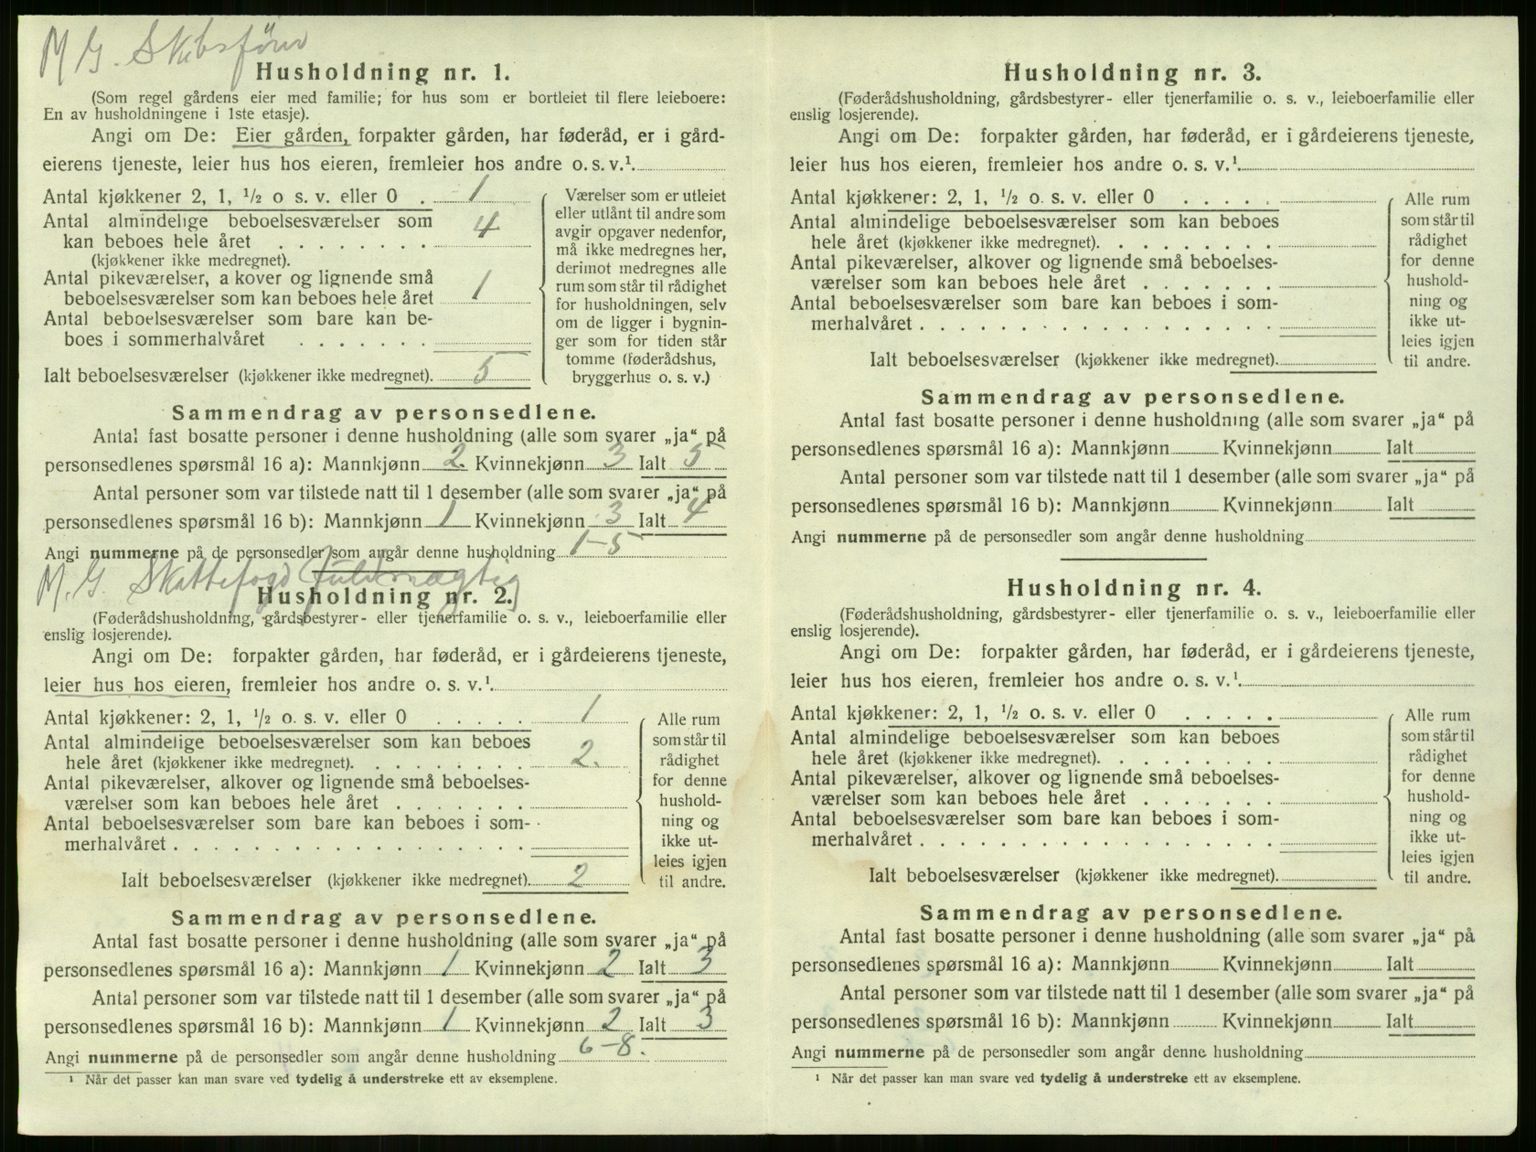 M G. Skibsfører
Husholdning nr. 1.
(Som regel gårdens eier med familie; for hus som er bortleiet til flere leieboere:
En av husholdningene i 1ste etasje).
Angi om De: Eier gården, forpakter gården, har føderåd, er i gård-
eierens tjeneste, leier hus hos eieren, fremleier hos andre o. s. v.¹
Antal kjøkkener 2, 1, ½ o s. v. eller 0 . 1
Antal almindelige beboelsesværelser som
kan beboes hele året . . . . . . . . 4
(kjøkkener ikke medregnet).
Antal pikeværelser, a kover og lignende små
beboelsesværelser som kan beboes hele året 1
Antal beboelsesværelser som bare kan be-
boes i sommerhalvåret . . . . . . .
Ialt beboelsesværelser (kjøkkener ikke medregnet). 5
Værelser som er utleiet
eller utlånt til andre som
avgir opgaver nedenfor,
må ikke medregnes her,
derimot medregnes alle
rum som står til rådighet
for husholdningen, selv
om de ligger i bygnin-
ger som for tiden står
tomme (føderådshus,
bryggerhus o. s. v.)
Sammendrag av personsedlene.
Antal fast bosatte personer i denne husholdning (alle som svarer „ja“ på
personsedlenes spørsmål 16 a): Mannkjønn 2. Kvinnekjønn 3 Ialt 5
Antal personer som var tilstede natt til 1 desember (alle som svarer „ja“ på
personsedlenes spørsmål 16 b): Mannkjønn 1 Kvinnekjønn 3 Ialt 4
Angi nummerne på de personsedler som angår denne husholdning 1-5
M. G. Skattefogd (fuldmægtig)
Husholdning nr. 2.
(Føderådshusholdning, gårdsbestyrer- eller tjenerfamilie o. s. v., leieboerfamilie eller
enslig losjerende).
Angi om De: forpakter gården, har føderåd, er i gårdeierens tjeneste,
leier hus hos eieren, fremleier hos andre o. s. v.¹
Antal kjøkkener: 2, 1, ½ o. s. v. eller 0 . . . . . 1
Antal almindelige beboelsesværelser som kan beboes
hele året (kjøkkener ikke medregnet). . . . . . . . 2.
Antal pikeværelser, alkover og lignende små beboelses-
værelser som kan beboes hele året . . . . . . .
Antal beboelsesværelser som bare kan beboes i som-
merhalvåret . . . . . . . . . . . . . . . . .
Ialt beboelsesværelser (kjøkkener ikke medregnet). 2
Alle rum
som står til
rådighet
for denne
hushold-
ning og
ikke ut-
leies igjen
til andre.
Sammendrag av personsedlene.
Antal fast bosatte personer i denne husholdning (alle som svarer „ja“ på
personsedlenes spørsmål 16 a): Mannkjønn 1 Kvinnekjønn 2 Ialt 3
Antal personer som var tilstede natt til 1 desember (alle som svarer „ja“ på
personsedlenes spørsmål 16 b): Mannkjønn 1 Kvinnekjønn 2 Ialt 3
Angi nummerne på de personsedler som angår denne husholdning 6-8.
¹ Når det passer kan man svare ved tydelig å understreke ett av eksemplene.
Husholdning nr. 3.
(Føderådshusholdning, gårdsbestyrer- eller tjenerfamilie o. s. v., leieboerfamilie eller
enslig losjerende).
Angi om De: forpakter gården, har føderåd, er i gårdeierens tjeneste,
leier hus hos eieren, fremleier hos andre o. s. v.¹
Antal kjøkkener: 2, 1, ½ o. s. v. eller 0 . . . . .
Antal almindelige beboelsesværelser som kan beboes
hele året (kjøkkener ikke medregnet). . . . . . . . .
Antal pikeværelser, alkover og lignende små beboelses-
værelser som kan beboes hele året . . . . . . .
Antal beboelsesværelser som bare kan beboes i som-
merhalvåret . . . . . . . . . . . . . . . . . .
Ialt beboelsesværelser (kjøkkener ikke medregnet).
Alle rum
som står til
rådighet
for denne
hushold-
ning og
ikke ut-
leies igjen
til andre.
Sammendrag av personsedlene.
Antal fast bosatte personer i denne husholdning (alle som svarer „ja“ på
personsedlenes spørsmål 16 a): Mannkjønn Kvinnekjønn Ialt
Antal personer som var tilstede natt til 1 desember (alle som svarer „ja“ på
personsedlenes spørsmål 16 b): Mannkjønn Kvinnekjønn Ialt
Angi nummerne på de personsedler som angår denne husholdning
Husholdning nr. 4.
(Føderådshusholdning, gårdsbestyrer- eller tjenerfamilie o. s. v., leieboerfamilie eller
enslig losjerende).
Angi om De: forpakter gården, har føderåd, er i gårdeierens tjeneste,
leier hus hos eieren, fremleier hos andre o. s. v.¹
Antal kjøkkener: 2, 1, ½ o. s. v. eller 0 . . . . .
Antal almindelige beboelsesværelser som kan beboes
hele året (kjøkkener ikke medregnet). . . . . . . . .
Antal pikeværelser, alkover og lignende små beboelses-
værelser som kan beboes hele året . . . . . . .
Antal beboelsesværelser som bare kan beboes i som-
merhalvåret . . . . . . . . . . . . . . . . . .
Ialt beboelsesværelser (kjøkkener ikke medregnet).
Alle rum
som står til
rådighet
for denne
hushold-
ning og
ikke ut-
leies igjen
til andre.
Sammendrag av personsedlene.
Antal fast bosatte personer i denne husholdning (alle som svarer „ja“ på
personsedlenes spørsmål 16 a): Mannkjønn Kvinnekjønn Ialt
Antal personer som var tilstede natt til 1 desember (alle som svarer „ja“ på
personsedlenes spørsmål 16 b): Mannkjønn Kvinnekjønn Ialt
Angi nummerne på de personsedler som angår denne husholdning
¹ Når det passer kan man svare ved tydelig å understreke ett av eksemplene.